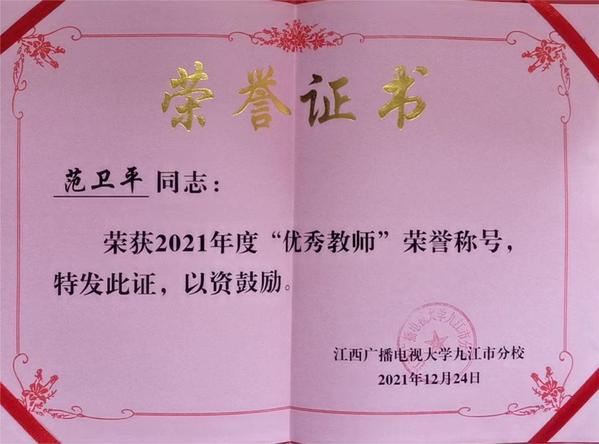 荣誉证书
范卫平 同志：
荣获2021年度“优秀教师”荣誉称号，
特发此证，以资鼓励。
江西广播电视大学九江市分校
2021年12月24日